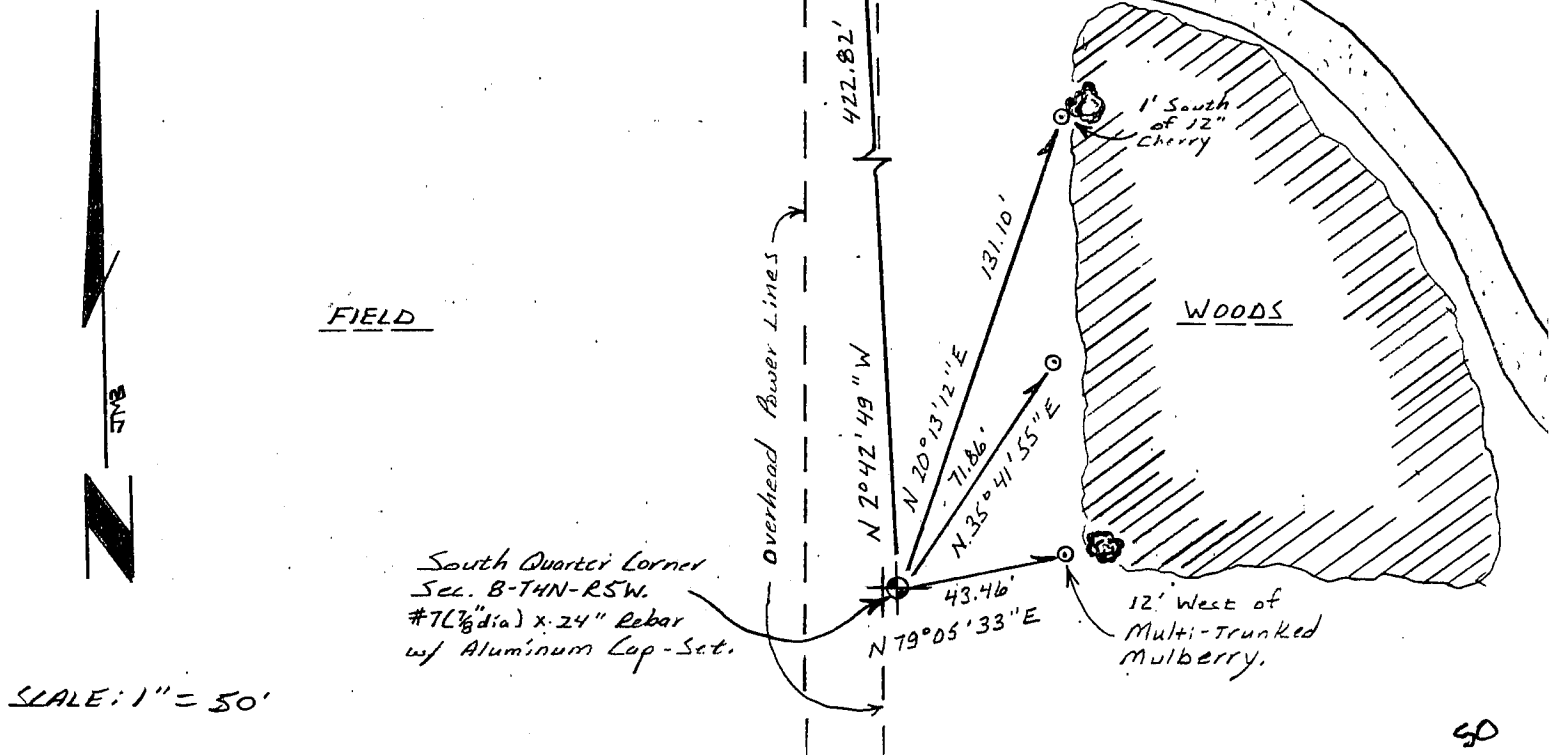 422.82'
1' South
of 12"
Cherry
131.10'
Overhead Power Lines
FIELD
WOODS
N 2°42'49" W
N 20°13'12" E
71.86'
N 35°41'55" E
South Quarter Corner
Sec. 8-T4N-R5W.
#7(7/8"dia) x 24" Rebar
w/ Aluminum Cap-Set.
43.46'
N 79°05'33" E
12' West of
Multi-Trunked
Mulberry.
SCALE: 1" = 50'
N